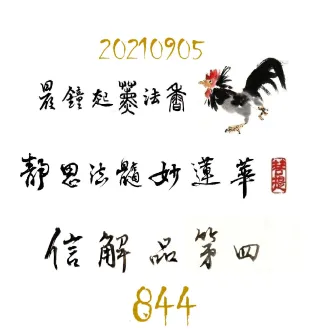 20210905
晨鐘起薰法香
靜思法髓妙蓮華
信解品第四
844